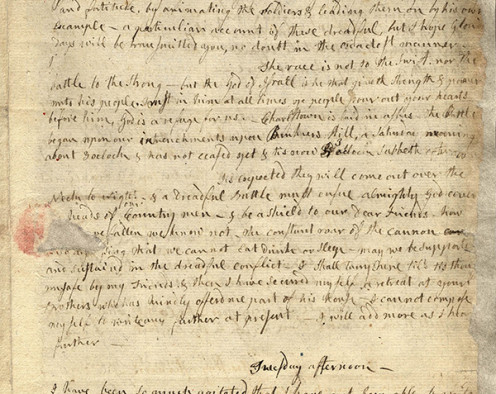 and fortitude, by animating the soldiers & leading them on by his own
example — a particuliar account of these dreadful, but I hope Glorious
days will be transmitted you, no doubt in the exactest manner.
The race is not to the swift, nor the
battle to the strong — but the God of Israel is he that giveth strength & power
unto his people. Trust in him at all times ye people pour out your hearts
before him, God is a refuge for us. — Charlstown is laid in ashes. The Battle
began upon our intrenchments upon Bunkers Hill, a Saturday morning
about 3 oclock & has not ceased yet & tis now 3 oclock Sabbeth afternoon
Tis expected they will come out over the
Neck to night — & a dreadful Battle must ensue almighty God cover
heads of our Country men — & be a shield to our Dear Friends. how
have fallen we know not — the constant roar of the cannon
that we cannot eat drinke or sleep — may we be supported
and sustaind in the dreadful conflict — I shall tarry here till tis thought
unsafe by my Friends & then I have secured myself a retreat at your
Brothers who has kindly offerd me part of his House — I cannot compose
myself to write any further at present — I will add more as I hear
further —
Tuesday afternoon —
I have been so much agitated that I have not been able to write